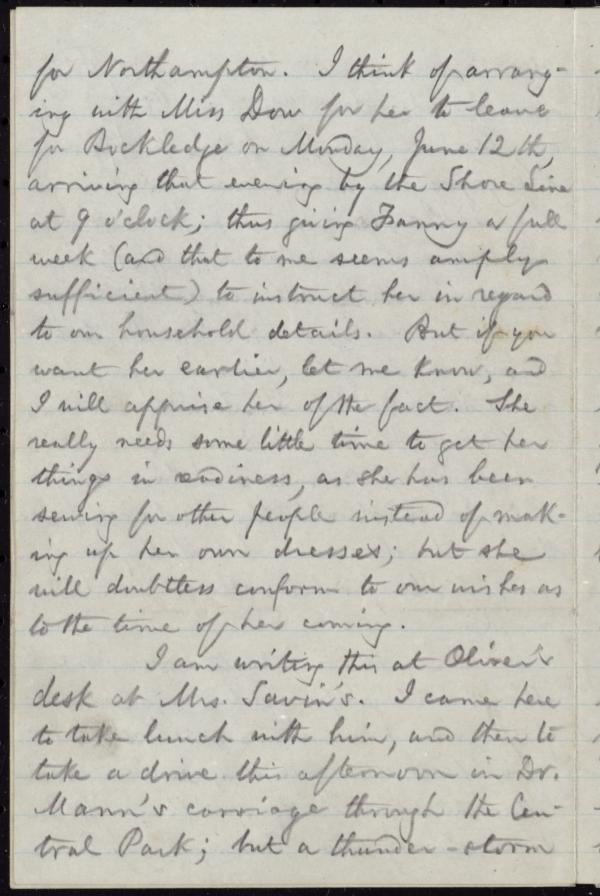 for Northampton. I think of arrang-
ing with Miss Dow for her to leave
for Rockledge on Monday, June 12th,
arriving that evening by the Shore Line
at 9 o'clock; thus giving Fanny a full
week (and that to me seems amply
sufficient) to instruct her in regard
to our household details. But if you
want her earlier, let me know, and
I will apprise her of the fact. She
really needs some little time to get her
things in readiness, as she has been
sewing for other people instead of mak-
ing up her own dresses; but she
will doubtless conform to our wishes as
to the time of her coming.
I am writing this at Oliver's
desk at Mrs. Savin's. I came here
to take lunch with him, and then to
take a drive this afternoon in Dr.
Mann's carriage through the Cen-
tral Park; but a thunder-storm